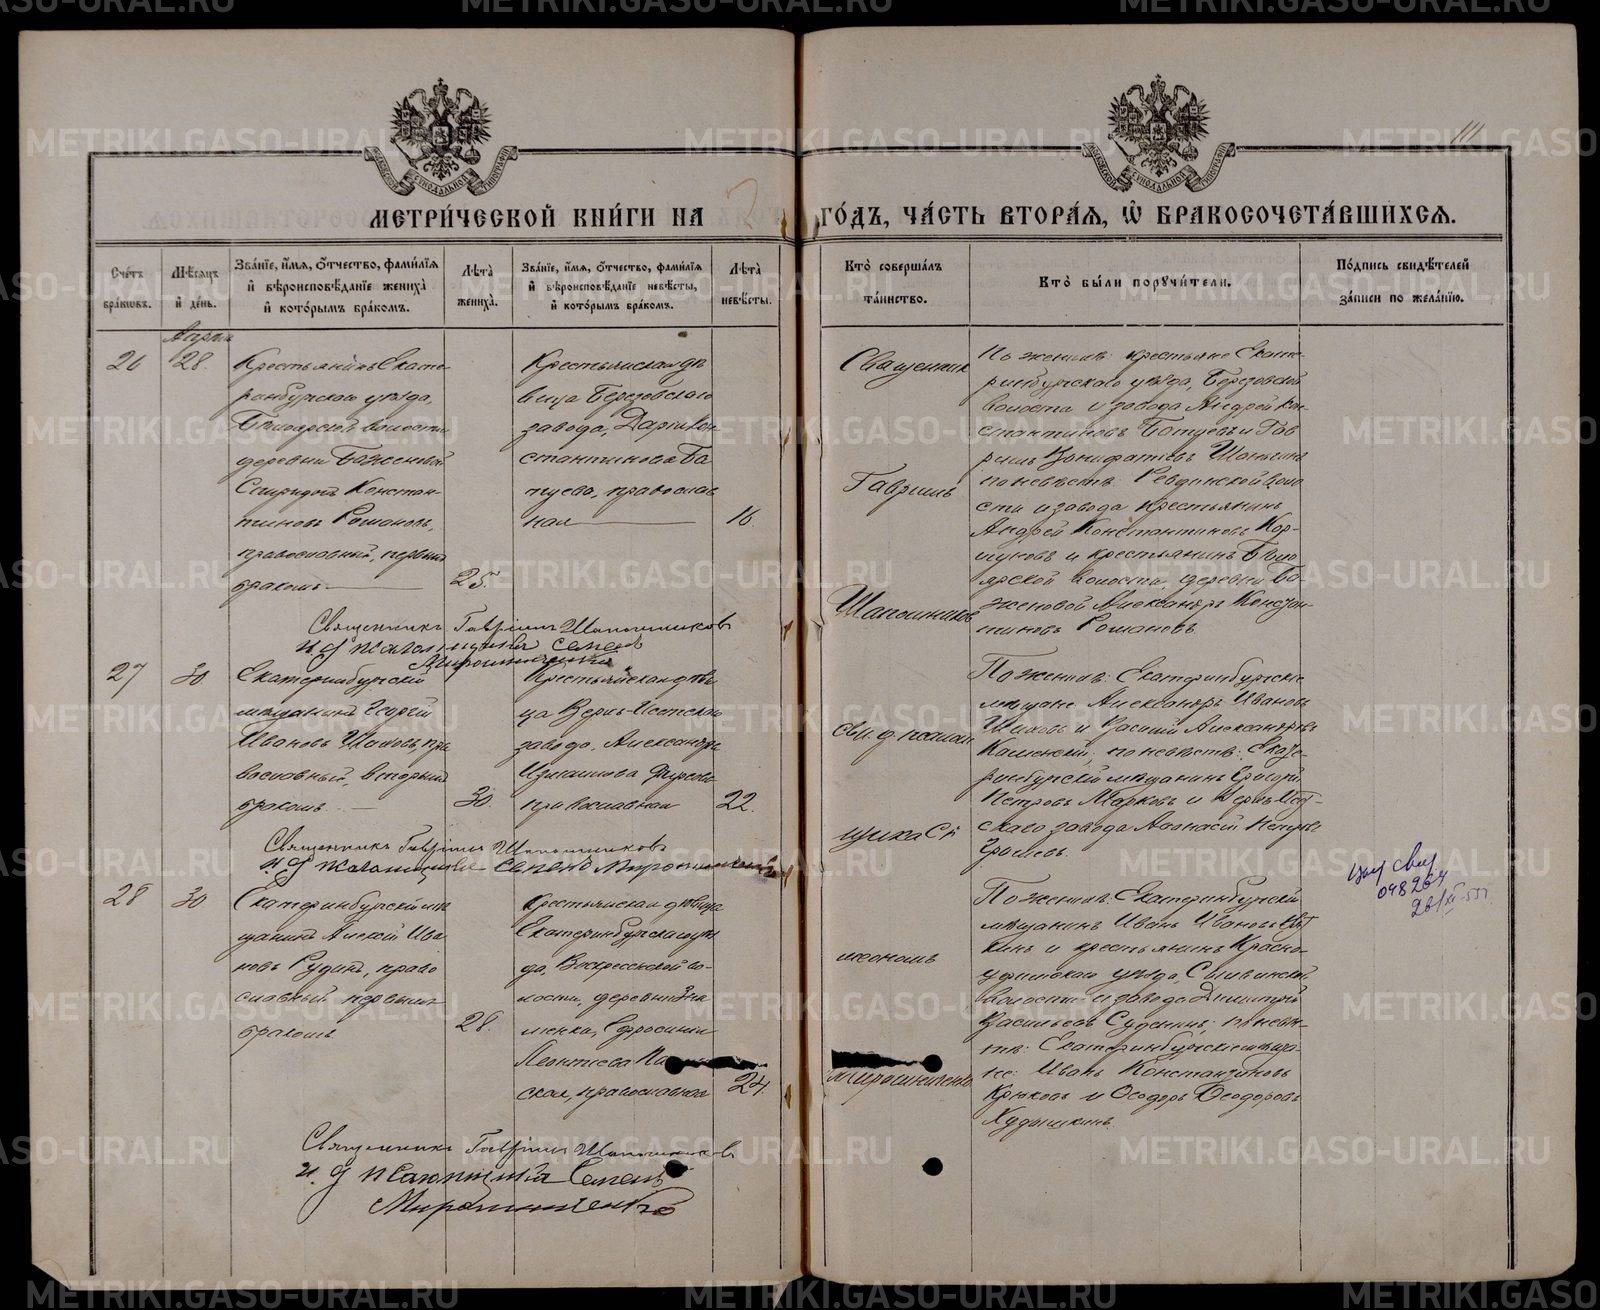 МЕТРИ́ЧЕСКОЙ КНИ́ГИ НА
ГО́ДЪ, ЧА́СТЬ ВТОРА́Я, Ѡ҆ БРАКОСОЧЕТА́ВШИХСЯ.
Сче́тъ бра́ковъ.
Мѣ́сяцъ и҆ де́нь.
Зва́нїе, и҆́мя, ѻ҆́тчество, фами́лїя и҆ вѣроисповѣ́данїе жениха̀ и҆ кото́рымъ бра́комъ.
Лѣ́та жениха̀.
Зва́нїе, и҆́мя, ѻ҆́тчество, фами́лїя и҆ вѣроисповѣ́данїе невѣ́сты, и҆ кото́рымъ бра́комъ.
Лѣ́та невѣ́сты.
Кто̀ соверша́лъ та́инство.
Кто̀ бы́ли порꙋчи́тели.
По́дпись свидѣ́телей за́писи по жела́нїю.
Апрѣль
26
28.
Крестьянинъ Екате-
ринбургскаго уѣзда,
Бѣлоярской волости
деревни Баженовой
Спиридонъ Констан-
тиновъ Романовъ,
православный, первымъ
бракомъ
25.
Крестьянская дѣ
вица Березовскаго
завода, Дарья Кон
стантинова Ба
туева, православ
ная
16
Священникъ
Гавріилъ
Шапошников
По женихѣ: крестьяне Екате-
ринбургскаго уѣзда, Березовской
волости и завода Андрей Кон-
стантиновъ Батуевъ и Гав
риилъ
по невѣстѣ: Ревдинской воло
сти и завода крестьянинъ
Андрей Константиновъ Кор-
шуковъ и крестьянинъ Бѣло
ярской волости, деревни Ба-
женовой Александръ Констан-
тиновъ Романовъ.
Священникъ Гавріилъ Шапошниковъ
и. д псаломщика Семенъ
Мирошниченко
27
30
Екатеринбургскій
мѣщанинъ Георгій
Ивановъ Шиховъ, пра
вославный, вторымъ
бракомъ
30.
Крестьянская дѣви
ца Верхъ-Исетскаго
завода, Александра
Измаилова Фирсова
православная
22.
св. и. д. псалом
щика Се
По женихѣ: Екатеринбургскіе
мѣщане Александръ Ивановъ
Шиховъ и Василій Александровъ
Каменскій; по невѣстѣ: Екате
ринбургскій мѣщанинъ Григорій
Петровъ Марковъ и Верхъ-Исет-
скаго завода Афанасій Петровъ
Священникъ Гавріилъ Шапошниковъ
и. д псаломщика Семенъ Мирошниченко
28
30
Екатеринбургскій мѣ
щанинъ Алексѣй Ива
новъ Рудинъ, право
славный первымъ
бракомъ
28.
Крестьянская дѣвица
Екатеринбургскаго уѣз
да, Воскресенской во-
лости, деревни
Ефросинія
Леонтіева
ская, православная
24.
меномъ
Мирошниченко
По женихѣ: Екатеринбургскій
мѣщанинъ Иванъ Ивановъ
кинъ и крестьянинъ Красно-
уфимскаго уѣзда, Сылвинской
волости и завода Димитрій
Васильевъ Суденкинъ; по невѣс-
тѣ: Екатеринбургскіе мѣща-
не: Иванъ Константиновъ
Крюковъ и Ѳеодоръ Ѳеодоровъ
Худышкинъ.
048264
Священникъ Гавріилъ Шапошниковъ
и. д псаломщика Семенъ
Мирошниченко
METRIKI.GASO-URAL.RU